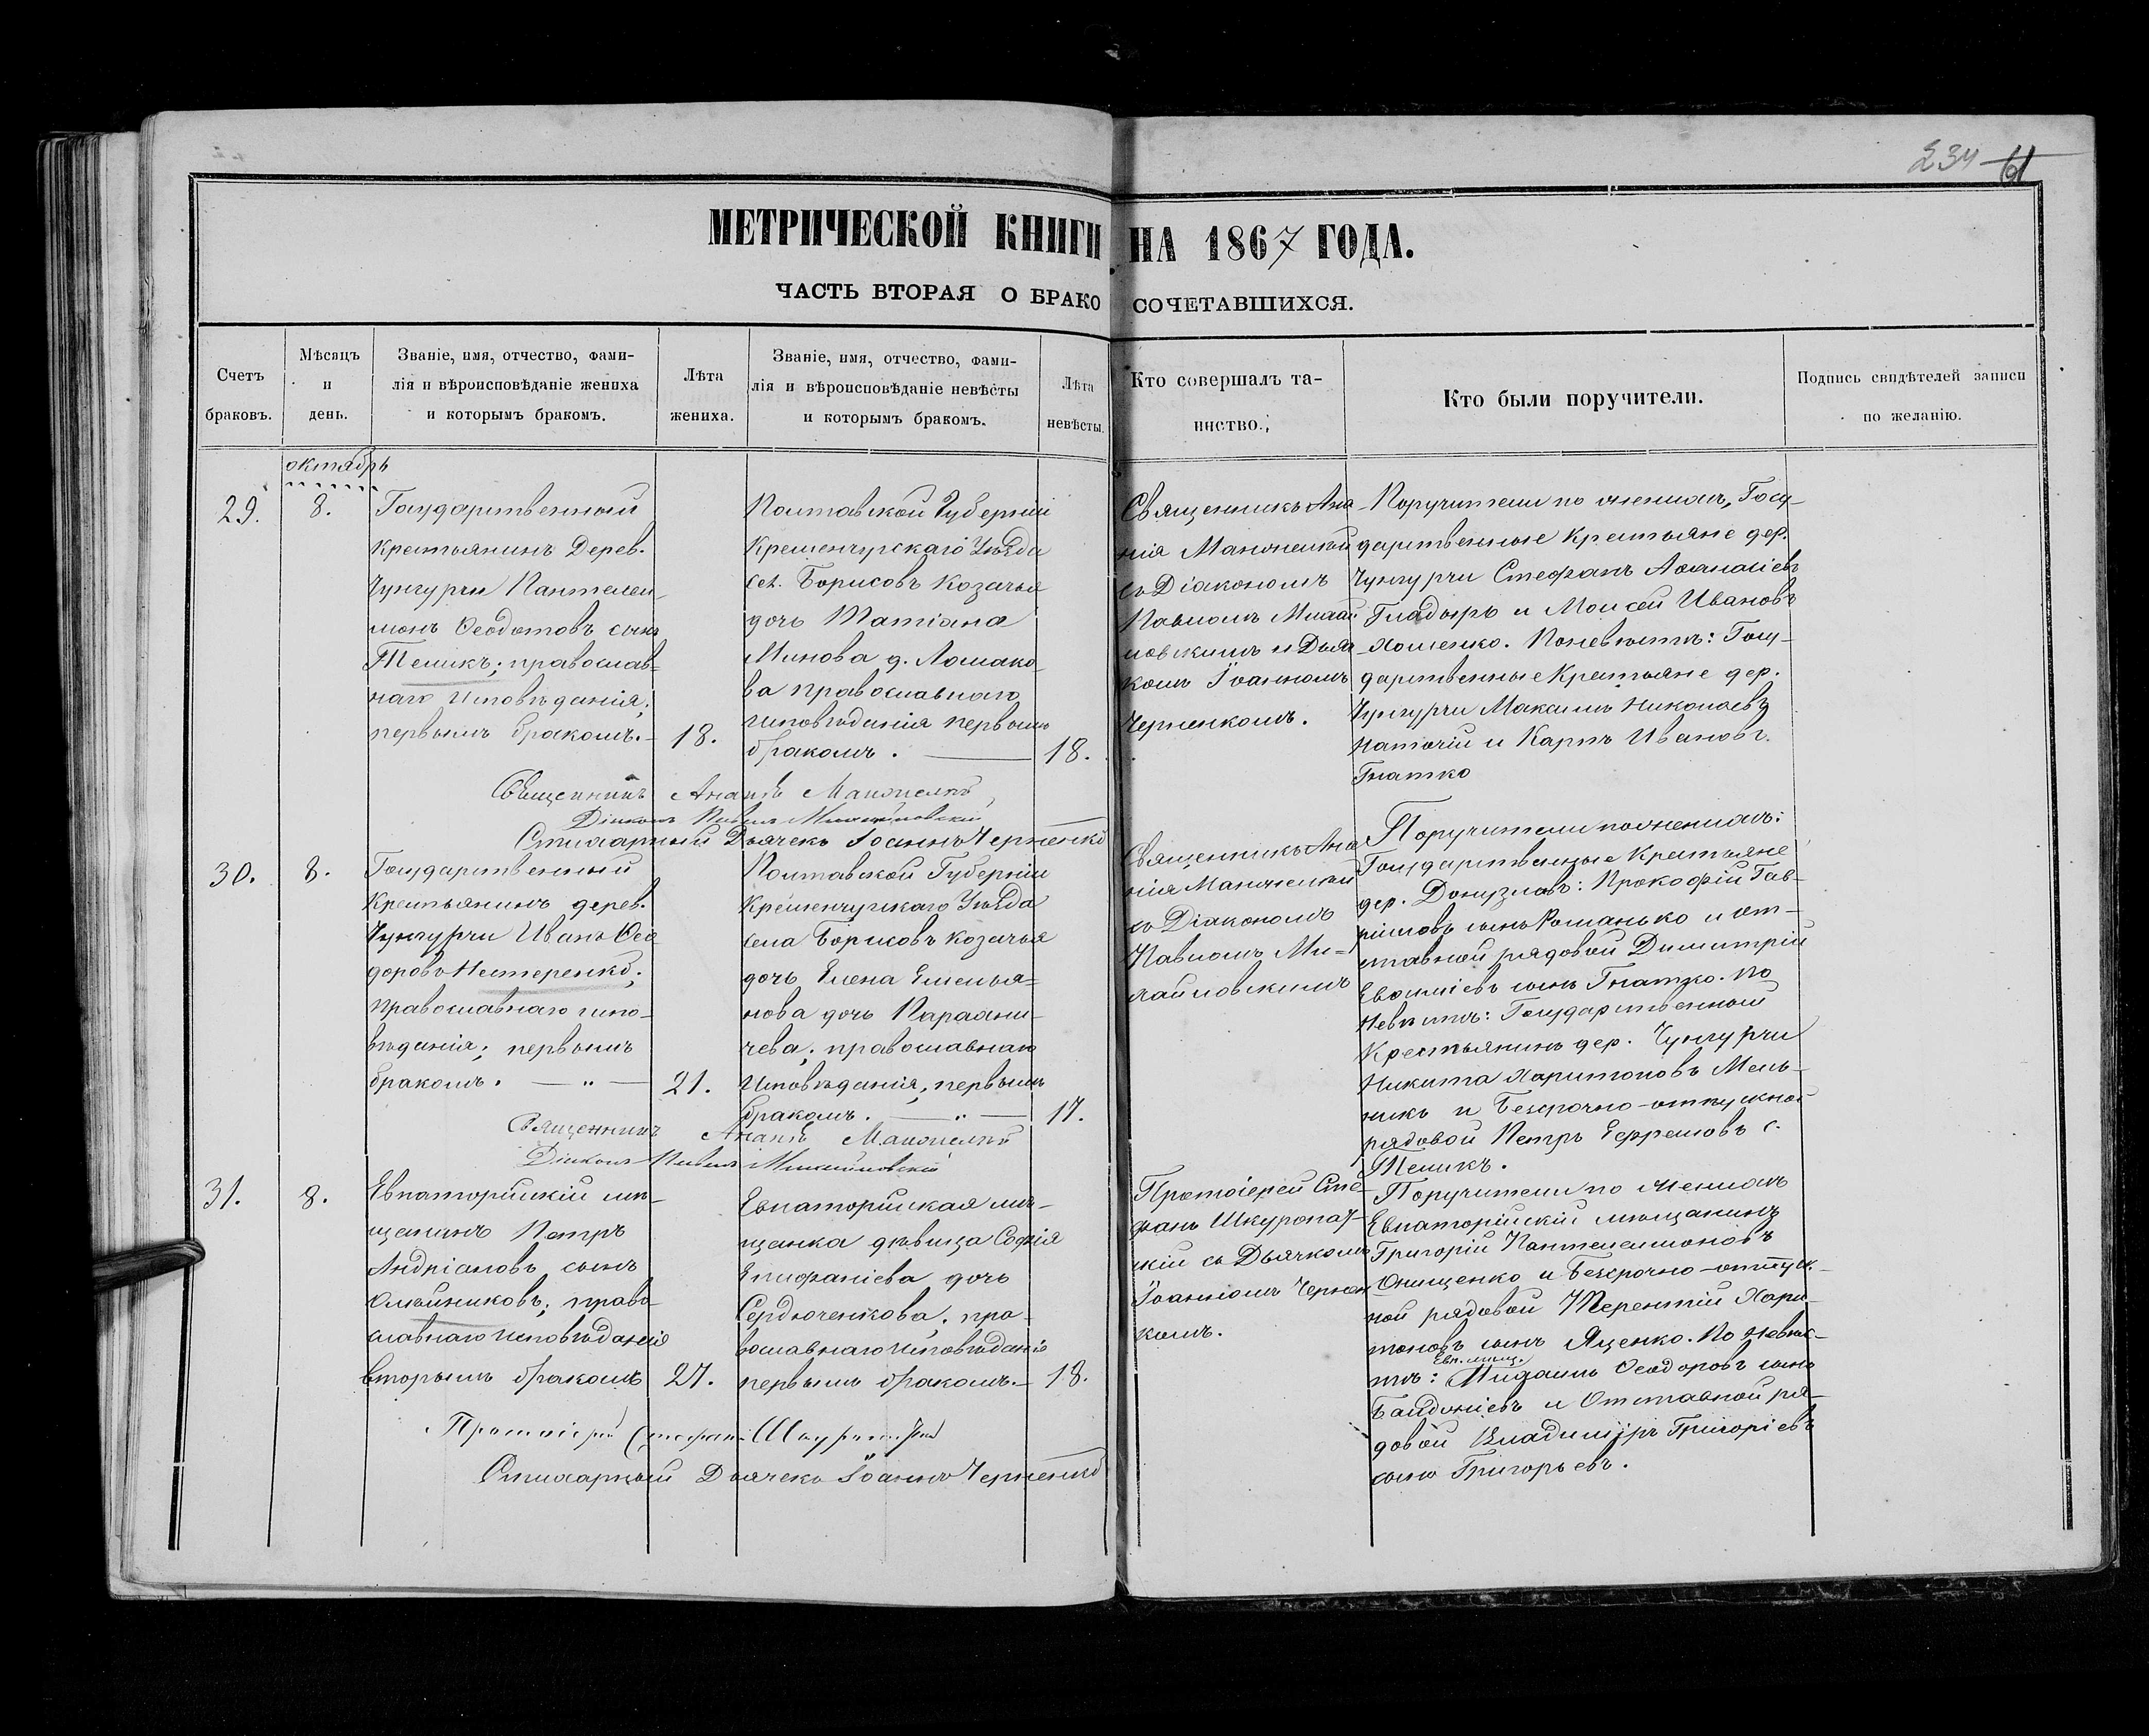 234 61
МЕТРИЧЕСКОЙ КНИГИ НА 1867 ГОДА.
ЧАСТЬ ВТОРАЯ О БРАКОСОЧЕТАВШИХСЯ.
Счетъ
браковъ.
Мѣсяцъ
и
день.
Званіе, имя, отчество, фами-
лія и вѣроисповѣданіе жениха
и которымъ бракомъ.
Лѣта
жениха.
Званіе, имя, отчество, фами-
лія и вѣроисповѣданіе невѣсты
и которымъ бракомъ.
Лѣта
невѣсты.
Кто совершалъ та-
инство.
Кто были поручители.
Подпись свидѣтелей записи
по желанію.
октябрь
29.
8.
Государственный
крестьянинъ Дерев.
Чунгурчи Пантелеи-
монъ Ѳеодотовъ сынъ
Теликъ; православ-
наго исповѣданія,
первымъ бракомъ.
18.
Полтавской Губерніи
Кременчугскаго Уѣзда
сел. Борисовъ козачья
дочь Татіана
Минова д. Ломако-
ва православнаго
исповѣданія первымъ
бракомъ.
18.
Священникъ Ана-
нія
съ Діакономъ
Павломъ Михай-
ловскимъ и Дьяч-
комъ Іоанномъ
Черненкомъ.
Поручители по женихѣ, Госу-
дарственные крестьяне дер.
Чунгурчи Стефанъ Аѳанасіевъ
Гладырь и Моисей Ивановъ
Хоменко. По невѣстѣ: Госу-
дарственные Крестьяне дер.
Чунгурчи Максимъ Николаевъ
и Карпъ Ивановъ
Гнатко
Священникъ Ананія
Діаконъ Павелъ Михайловскій
Стихарный Дьячекъ Іоаннъ Черненко
30.
8.
Государственный
Крестьянинъ дерев.
Чунгурчи Иванъ Ѳео-
доровъ Нестеренко;
православнаго испо-
вѣданія; первымъ
бракомъ. — „ —
21.
Полтавской Губерніи
Кременчугскаго Уѣзда
села Борисовъ козачья
дочь Елена Емелья-
нова дочь
чева; православнаго
исповѣданія; первымъ
бракомъ. — „ —
17.
Священникъ Ана-
нія
съ Діакономъ
Павломъ Ми-
хайловскимъ
Поручители по женихѣ:
Государственные Крестьяне
дер. Донузлавъ: Прокофій Гав-
ріиловъ сынъ Романько и от-
ставной рядовой Димитрій
Евѳиміевъ сынъ Гнатко. По
Невѣстѣ: Государственный
Крестьянинъ дер. Чунгурчи
Никита Харитоновъ Мель-
никъ и Безсрочно-отпускной
рядовой Петръ Ефремовъ с.
Теликъ.
Священникъ Ананія
Діаконъ Павелъ Михайловскій
31.
8.
Евпаторійскій мѣ-
щанинъ Петръ
Андріановъ сынъ
Олейниковъ; право-
славнаго исповѣданія
вторымъ бракомъ
27.
Евпаторійская мѣ-
щанка дѣвица Софія
Епифаніева дочь
Сердюченкова; пра-
вославнаго исповѣданія
первымъ бракомъ.
18.
Протоіерей Сте-
фанъ Шкуропат-
скій съ Дьячкомъ
Іоанномъ Чернен-
комъ.
Поручители по Женихѣ
Евпаторійскій мѣщанинъ
Григорій Пантелеимоновъ
Онищенко и Безсрочно-отпуск-
ной рядовой Терентій Хари-
тоновъ сынъ Яценко. По Невѣс-
Евп. мѣщ.
тѣ: Ѳеодоровъ сынъ
и Отставной ря-
довой Владиміръ Григоріевъ
сынъ Григорьевъ.
Протоіерей Стефанъ
Стихарный Дьячекъ Іоаннъ Черненко